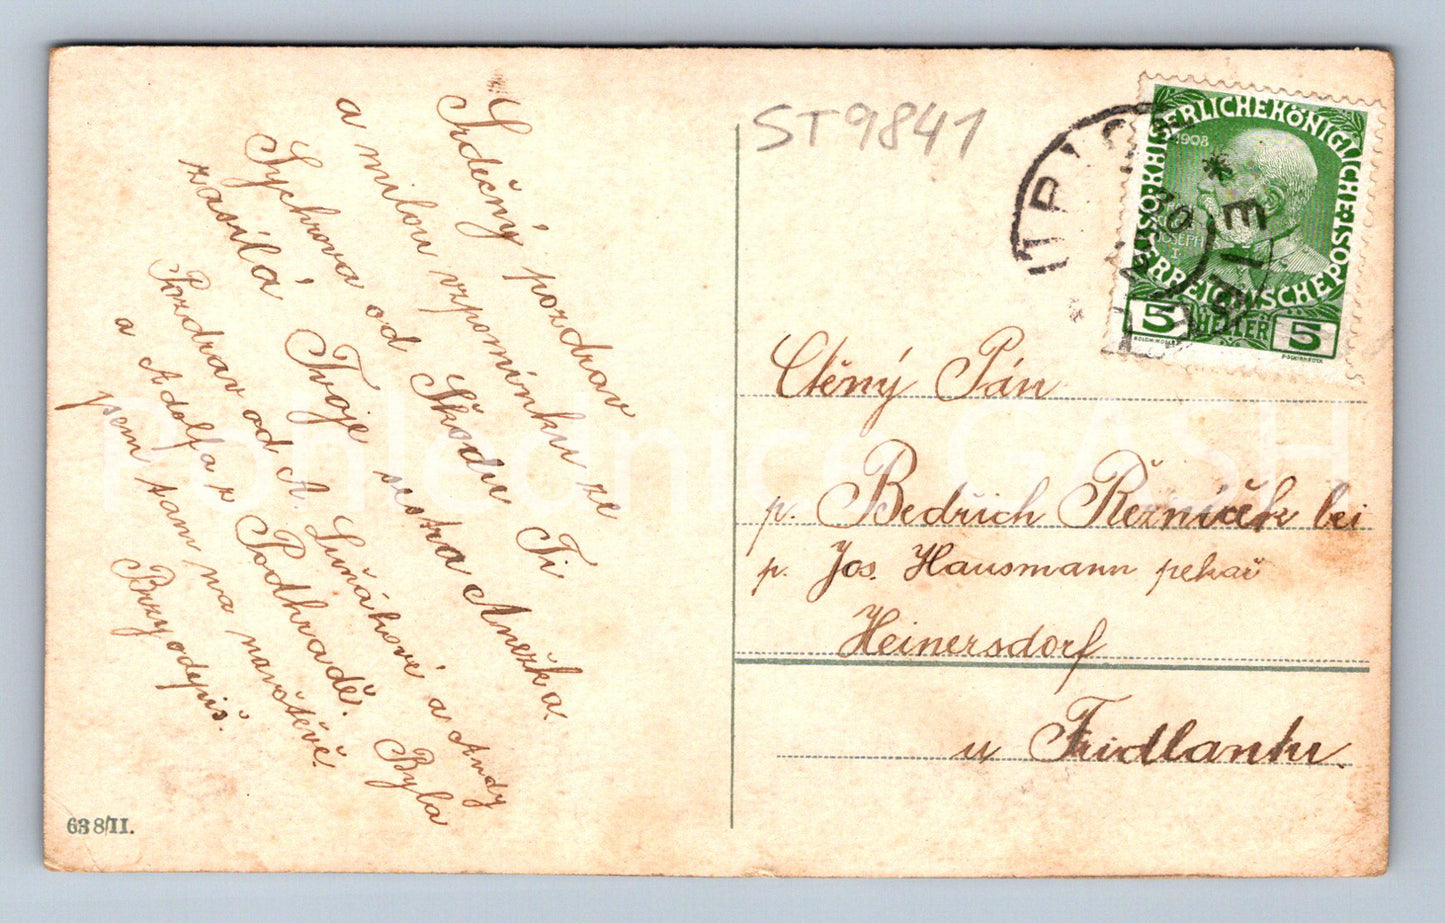 Srdečný pozdrav
a milou vzpomínku ze
Sychrova od Škodů Ti
zasílá Tvoje sestra Anežka.
Pozdrav od A. Luňákové a Andy
a Adolfa z Podhradě. Byla
jsem tam na návštěvě.
Brzy odepiš.
638/II.
ST9841
KAISERLICHE KÖNIGLICHE
ÖSTERREICHISCHE POST
1908
JOSEPH
I
5 HELLER 5
Ctěný Pán
p. Bedřich Řezníček bei
p. Jos. Hausmann pekař
Heinersdorf
u Fridlantu.
Pohlednice GASH